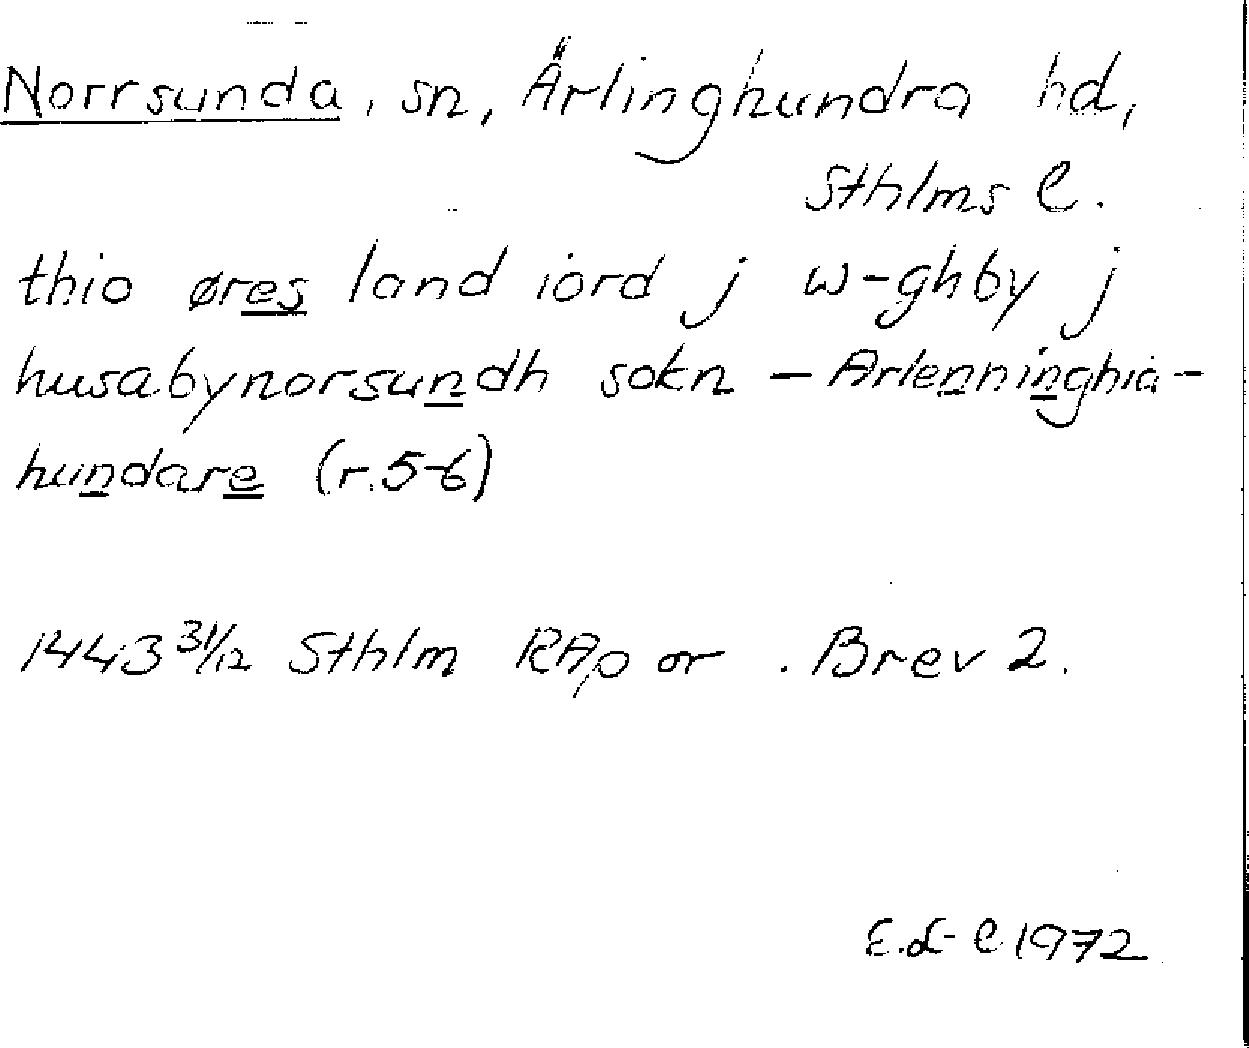 Norrsunda, sn, Ärlinghundra hd,
Sthlms l.
thio øres land iord j w-ghby j
husabynorsundh sokn - Arlenninghia-
hundare (r.5-6)
1443 31/12 Sthlm RAp or. Brev 2.
E.L-l 1972